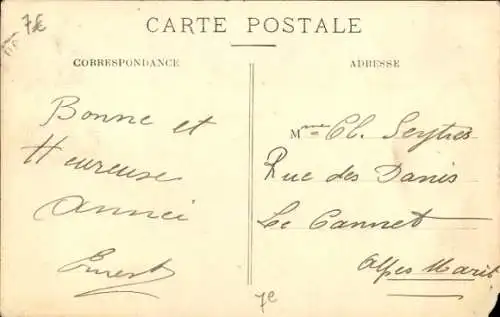 7€
CARTE POSTALE
CORRESPONDANCE
Bonne et
Heureuse
Année
Ernest
ADRESSE
Mme Cl. Seytres
Rue des Danis
Le Cannet
Alpes Marit
7e